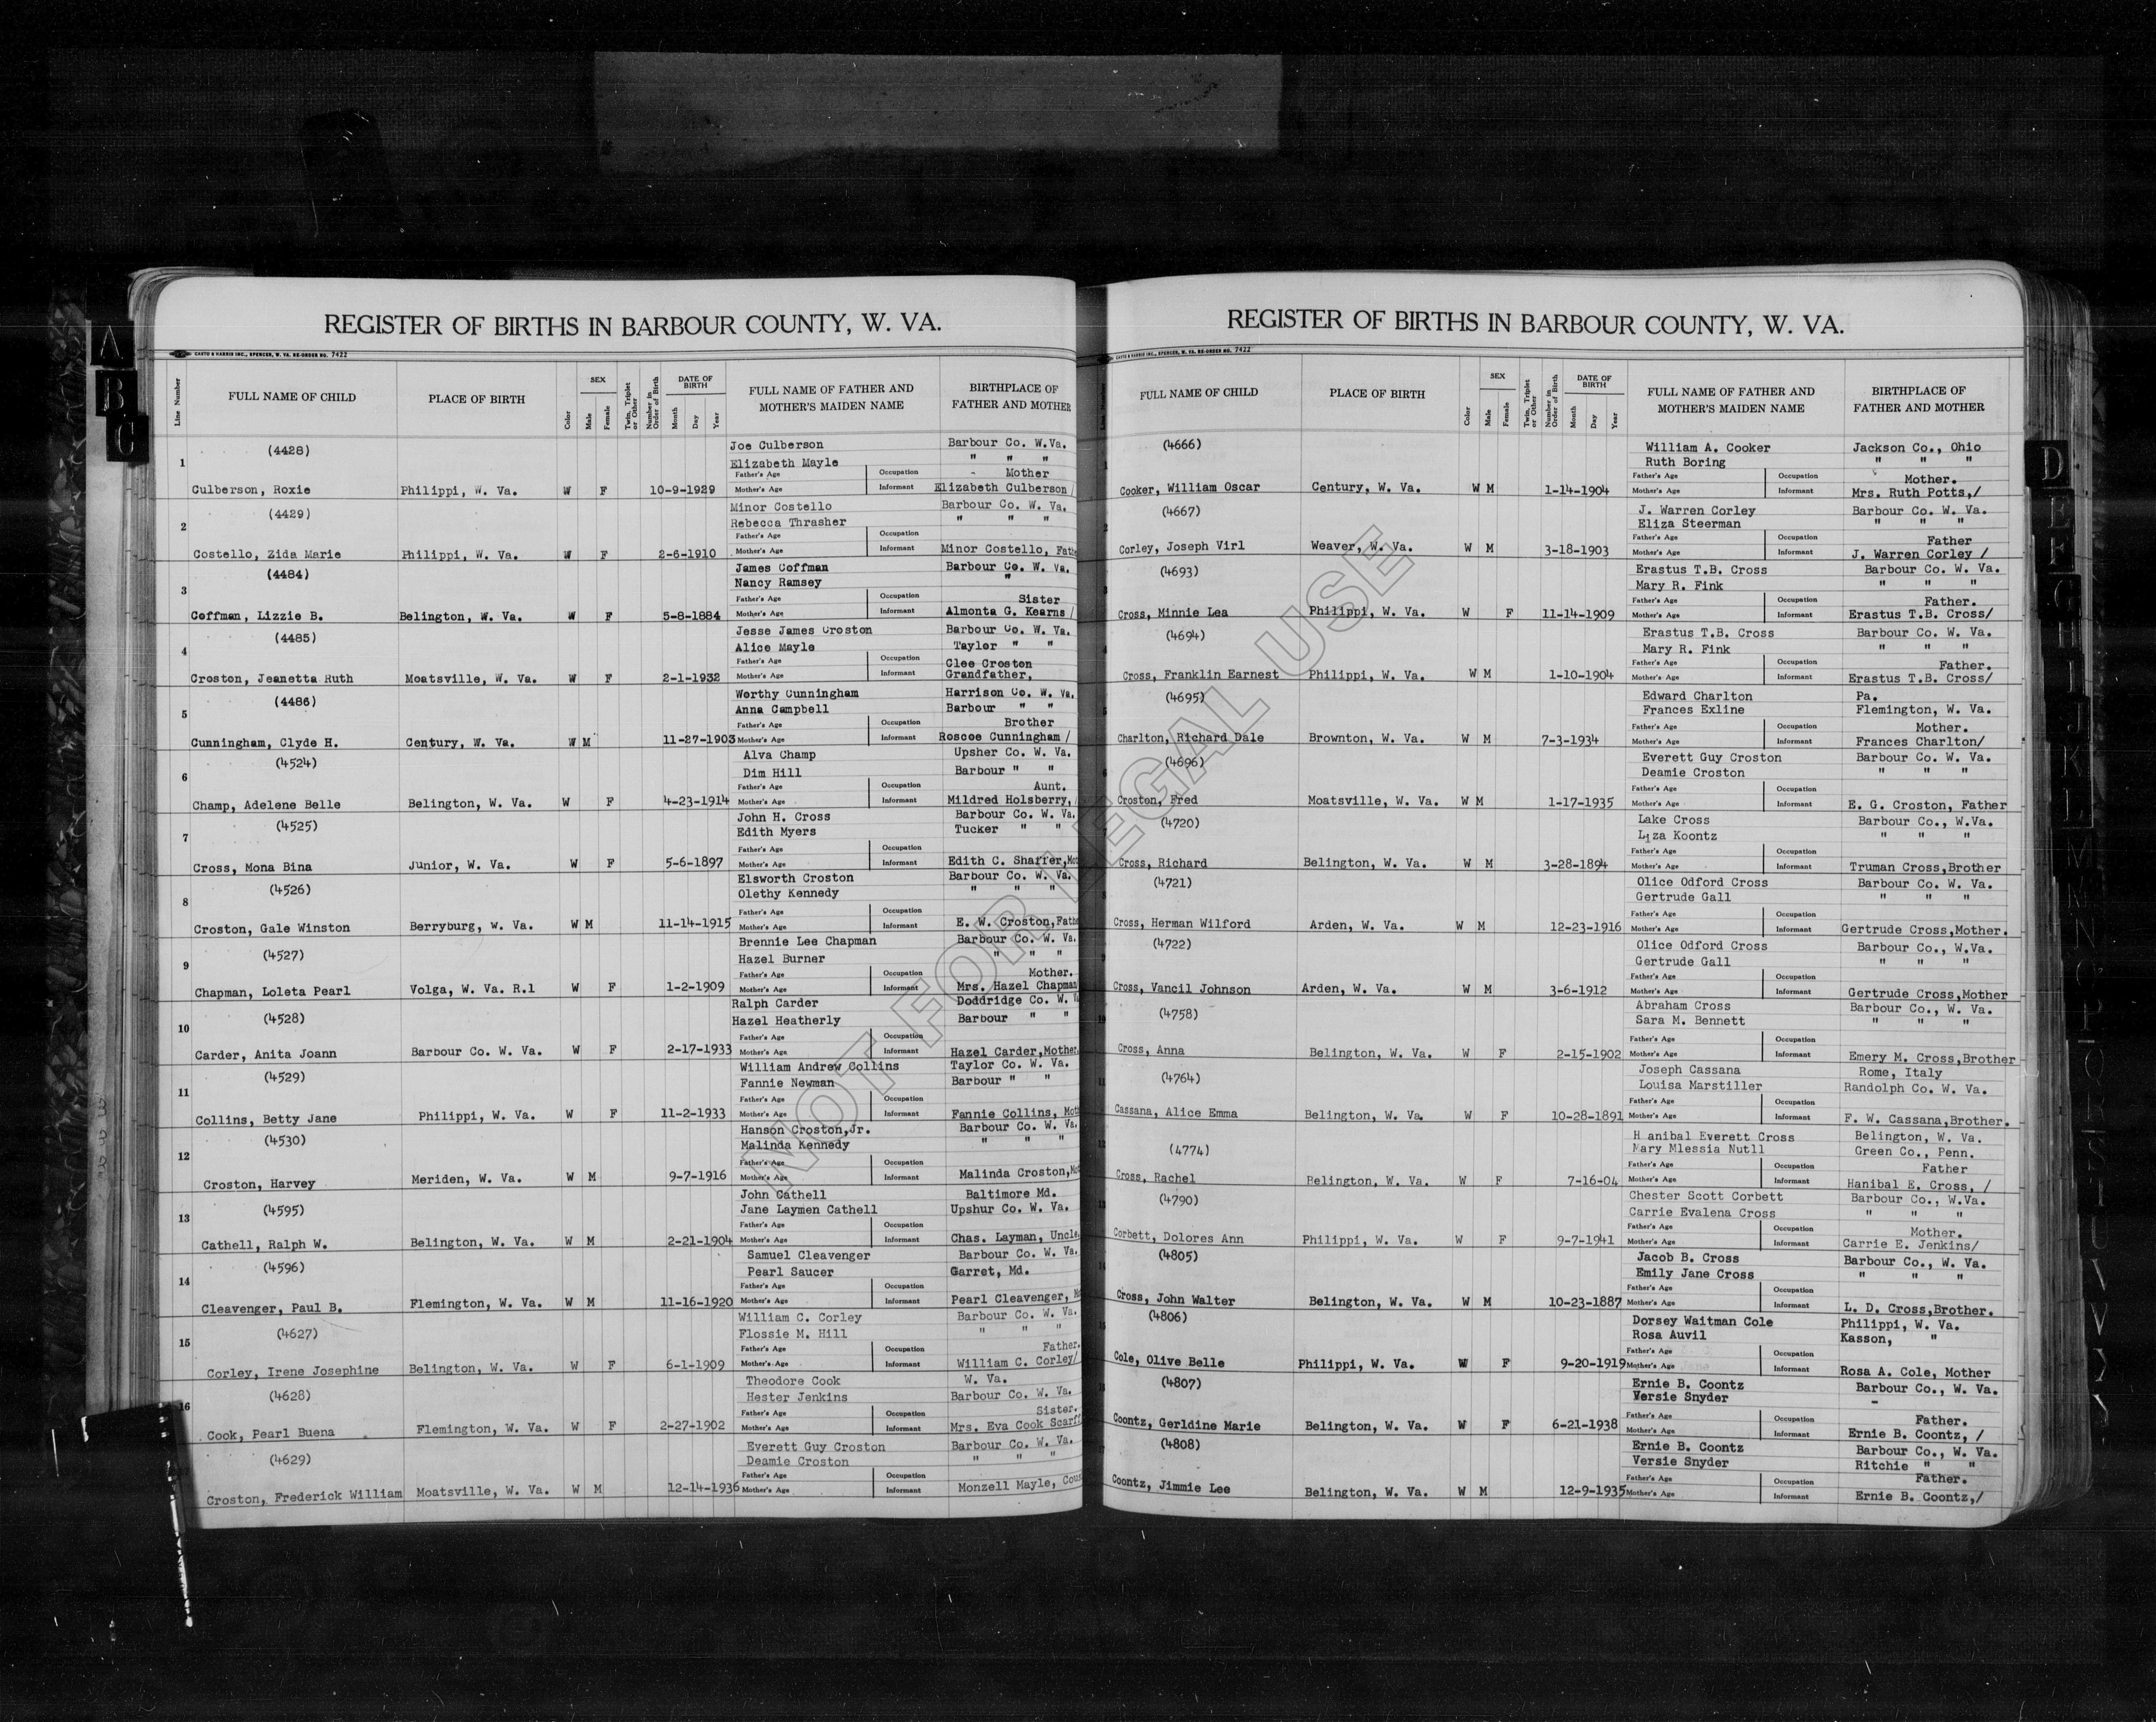 REGISTER OF BIRTHS IN BARBOUR COUNTY, W. VA.
CASTO & HARRIS INC., SPENCER, W. VA. RE-ORDER NO. 7422
Line Number FULL NAME OF CHILD PLACE OF BIRTH Color SEX Male Female Twin, Triplet or Other Number in Order of Birth DATE OF BIRTH Month Day Year FULL NAME OF FATHER AND MOTHER'S MAIDEN NAME BIRTHPLACE OF FATHER AND MOTHER
(4428) Joe Culberson Barbour Co. W.Va.
1 Elizabeth Mayle " " "
Father's Age Occupation - Mother
Culberson, Roxie Philippi, W. Va. W F 10-9-1929 Mother's Age Informant Elizabeth Culberson /
(4429) Minor Costello Barbour Co. W. Va.
2 Rebecca Thrasher " " "
Father's Age Occupation
Costello, Zida Marie Philippi, W. Va. W F 2-6-1910 Mother's Age Informant Minor Costello, Fath
(4484) James Coffman Barbour Co. W. Va.
3 Nancy Ramsey "
Father's Age Occupation Sister
Coffman, Lizzie B. Belington, W. Va. W F 5-8-1884 Mother's Age Informant Almonta G. Kearns /
(4485) Jesse James Croston Barbour Co. W. Va.
4 Alice Mayle Taylor " "
Father's Age Occupation Clee Croston
Croston, Jeanetta Ruth Moatsville, W. Va. W F 2-1-1932 Mother's Age Informant Grandfather,
(4486) Worthy Cunningham Harrison Co. W. Va.
5 Anna Campbell Barbour " "
Father's Age Occupation Brother
Cunningham, Clyde H. Century, W. Va. W M 11-27-1903 Mother's Age Informant Roscoe Cunningham /
(4524) Alva Champ Upsher Co. W. Va.
6 Dim Hill Barbour " "
Father's Age Occupation Aunt.
Champ, Adelene Belle Belington, W. Va. W F 4-23-1914 Mother's Age Informant Mildred Holsberry, /
(4525) John H. Cross Barbour Co. W. Va.
7 Edith Myers Tucker " "
Father's Age Occupation
Cross, Mona Bina Junior, W. Va. W F 5-6-1897 Mother's Age Informant Edith C. Shaffer, Mot
(4526) Elsworth Croston Barbour Co. W. Va.
8 Olethy Kennedy " " "
Father's Age Occupation
Croston, Gale Winston Berryburg, W. Va. W M 11-14-1915 Mother's Age Informant E. W. Croston, Fathe
(4527) Brennie Lee Chapman Barbour Co. W. Va.
9 Hazel Burner " " "
Father's Age Occupation Mother.
Chapman, Loleta Pearl Volga, W. Va. R.1 W F 1-2-1909 Mother's Age Informant Mrs. Hazel Chapman
(4528) Ralph Carder Doddridge Co. W. V
10 Hazel Heatherly Barbour " "
Father's Age Occupation
Carder, Anita Joann Barbour Co. W. Va. W F 2-17-1933 Mother's Age Informant Hazel Carder, Mother.
(4529) William Andrew Collins Taylor Co. W. Va.
11 Fannie Newman Barbour " "
Father's Age Occupation
Collins, Betty Jane Philippi, W. Va. W F 11-2-1933 Mother's Age Informant Fannie Collins, Moth
(4530) Hanson Croston, Jr. Barbour Co. W. Va.
12 Malinda Kennedy " " "
Father's Age Occupation
Croston, Harvey Meriden, W. Va. W M 9-7-1916 Mother's Age Informant Malinda Croston, Mo
(4595) John Cathell Baltimore Md.
13 Jane Laymen Cathell Upshur Co. W. Va.
Father's Age Occupation
Cathell, Ralph W. Belington, W. Va. W M 2-21-1904 Mother's Age Informant Chas. Layman, Uncle.
(4596) Samuel Cleavenger Barbour Co. W. Va.
14 Pearl Saucer Garret, Md.
Father's Age Occupation
Cleavenger, Paul B. Flemington, W. Va. W M 11-16-1920 Mother's Age Informant Pearl Cleavenger, M
(4627) William C. Corley Barbour Co. W. Va.
15 Flossie M. Hill " " "
Father's Age Occupation Father.
Corley, Irene Josephine Belington, W. Va. W F 6-1-1909 Mother's Age Informant William C. Corley/
(4628) Theodore Cook W. Va.
16 Hester Jenkins Barbour Co. W. Va.
Father's Age Occupation Sister.
Cook, Pearl Buena Flemington, W. Va. W F 2-27-1902 Mother's Age Informant Mrs. Eva Cook Scarff
(4629) Everett Guy Croston Barbour Co. W. Va.
Deamie Croston " " "
Father's Age Occupation
Croston, Frederick William Moatsville, W. Va. W M 12-14-1936 Mother's Age Informant Monzell Mayle, Cous
REGISTER OF BIRTHS IN BARBOUR COUNTY, W. VA.
CASTO & HARRIS INC., SPENCER, W. VA. RE-ORDER NO. 7422
Line Number FULL NAME OF CHILD PLACE OF BIRTH Color SEX Male Female Twin, Triplet or Other Number in Order of Birth DATE OF BIRTH Month Day Year FULL NAME OF FATHER AND MOTHER'S MAIDEN NAME BIRTHPLACE OF FATHER AND MOTHER
(4666) William A. Cooker Jackson Co., Ohio
1 Ruth Boring " " "
Father's Age Occupation Mother.
Cooker, William Oscar Century, W. Va. W M 1-14-1904 Mother's Age Informant Mrs. Ruth Potts,/
(4667) J. Warren Corley Barbour Co. W. Va.
2 Eliza Steerman " " "
Father's Age Occupation Father
Corley, Joseph Virl Weaver, W. Va. W M 3-18-1903 Mother's Age Informant J. Warren Corley /
(4693) Erastus T.B. Cross Barbour Co. W. Va.
3 Mary R. Fink " " "
Father's Age Occupation Father.
Cross, Minnie Lea Philippi, W. Va. W F 11-14-1909 Mother's Age Informant Erastus T.B. Cross/
(4694) Erastus T.B. Cross Barbour Co. W. Va.
4 Mary R. Fink " " "
Father's Age Occupation Father.
Cross, Franklin Earnest Philippi, W. Va. W M 1-10-1904 Mother's Age Informant Erastus T.B. Cross/
(4695) Edward Charlton Pa.
5 Frances Exline Flemington, W. Va.
Father's Age Occupation Mother.
Charlton, Richard Dale Brownton, W. Va. W M 7-3-1934 Mother's Age Informant Frances Charlton/
(4696) Everett Guy Croston Barbour Co. W. Va.
6 Deamie Croston " " "
Father's Age Occupation
Croston, Fred Moatsville, W. Va. W M 1-17-1935 Mother's Age Informant E. G. Croston, Father
(4720) Lake Cross Barbour Co., W.Va.
7 Liza Koontz " " "
Father's Age Occupation
Cross, Richard Belington, W. Va. W M 3-28-1894 Mother's Age Informant Truman Cross, Brother
(4721) Olice Odford Cross Barbour Co. W. Va.
8 Gertrude Gall " " "
Father's Age Occupation
Cross, Herman Wilford Arden, W. Va. W M 12-23-1916 Mother's Age Informant Gertrude Cross, Mother.
(4722) Olice Odford Cross Barbour Co., W.Va.
9 Gertrude Gall " " "
Father's Age Occupation
Cross, Vancil Johnson Arden, W. Va. W M 3-6-1912 Mother's Age Informant Gertrude Cross, Mother
(4758) Abraham Cross Barbour Co., W. Va.
10 Sara M. Bennett " " "
Father's Age Occupation
Cross, Anna Belington, W. Va. W F 2-15-1902 Mother's Age Informant Emery M. Cross, Brother
(4764) Joseph Cassana Rome, Italy
11 Louisa Marstiller Randolph Co. W. Va.
Father's Age Occupation
Cassana, Alice Emma Belington, W. Va. W F 10-28-1891 Mother's Age Informant F. W. Cassana, Brother.
12 H anibal Everett Cross Belington, W. Va.
(4774) Mary Mlessia Nutll Green Co., Penn.
Father's Age Occupation Father
Cross, Rachel Belington, W. Va. W F 7-16-04 Mother's Age Informant Hanibal E. Cross, /
(4790) Chester Scott Corbett Barbour Co., W.Va.
13 Carrie Evalena Cross " " "
Father's Age Occupation Mother.
Corbett, Dolores Ann Philippi, W. Va. W F 9-7-1941 Mother's Age Informant Carrie E. Jenkins/
(4805) Jacob B. Cross Barbour Co., W. Va.
14 Emily Jane Cross " " "
Father's Age Occupation
Cross, John Walter Belington, W. Va. W M 10-23-1887 Mother's Age Informant L. D. Cross, Brother.
(4806) Dorsey Waitman Cole Philippi, W. Va.
15 Rosa Auvil Kasson, "
Father's Age Occupation
Cole, Olive Belle Philippi, W. Va. W F 9-20-1919 Mother's Age Informant Rosa A. Cole, Mother
(4807) Ernie B. Coontz Barbour Co., W. Va.
16 Versie Snyder -
Father's Age Occupation Father.
Coontz, Gerldine Marie Belington, W. Va. W F 6-21-1938 Mother's Age Informant Ernie B. Coontz, /
(4808) Ernie B. Coontz Barbour Co., W. Va.
17 Versie Snyder Ritchie " "
Father's Age Occupation Father.
Coontz, Jimmie Lee Belington, W. Va. W M 12-9-1935 Mother's Age Informant Ernie B. Coontz,/
NOT FOR LEGAL USE
A
B
C
D
E
F
G
H
I
J
K
L
M
N
O
P
Q
R
S
T
U
V
W
X
Y